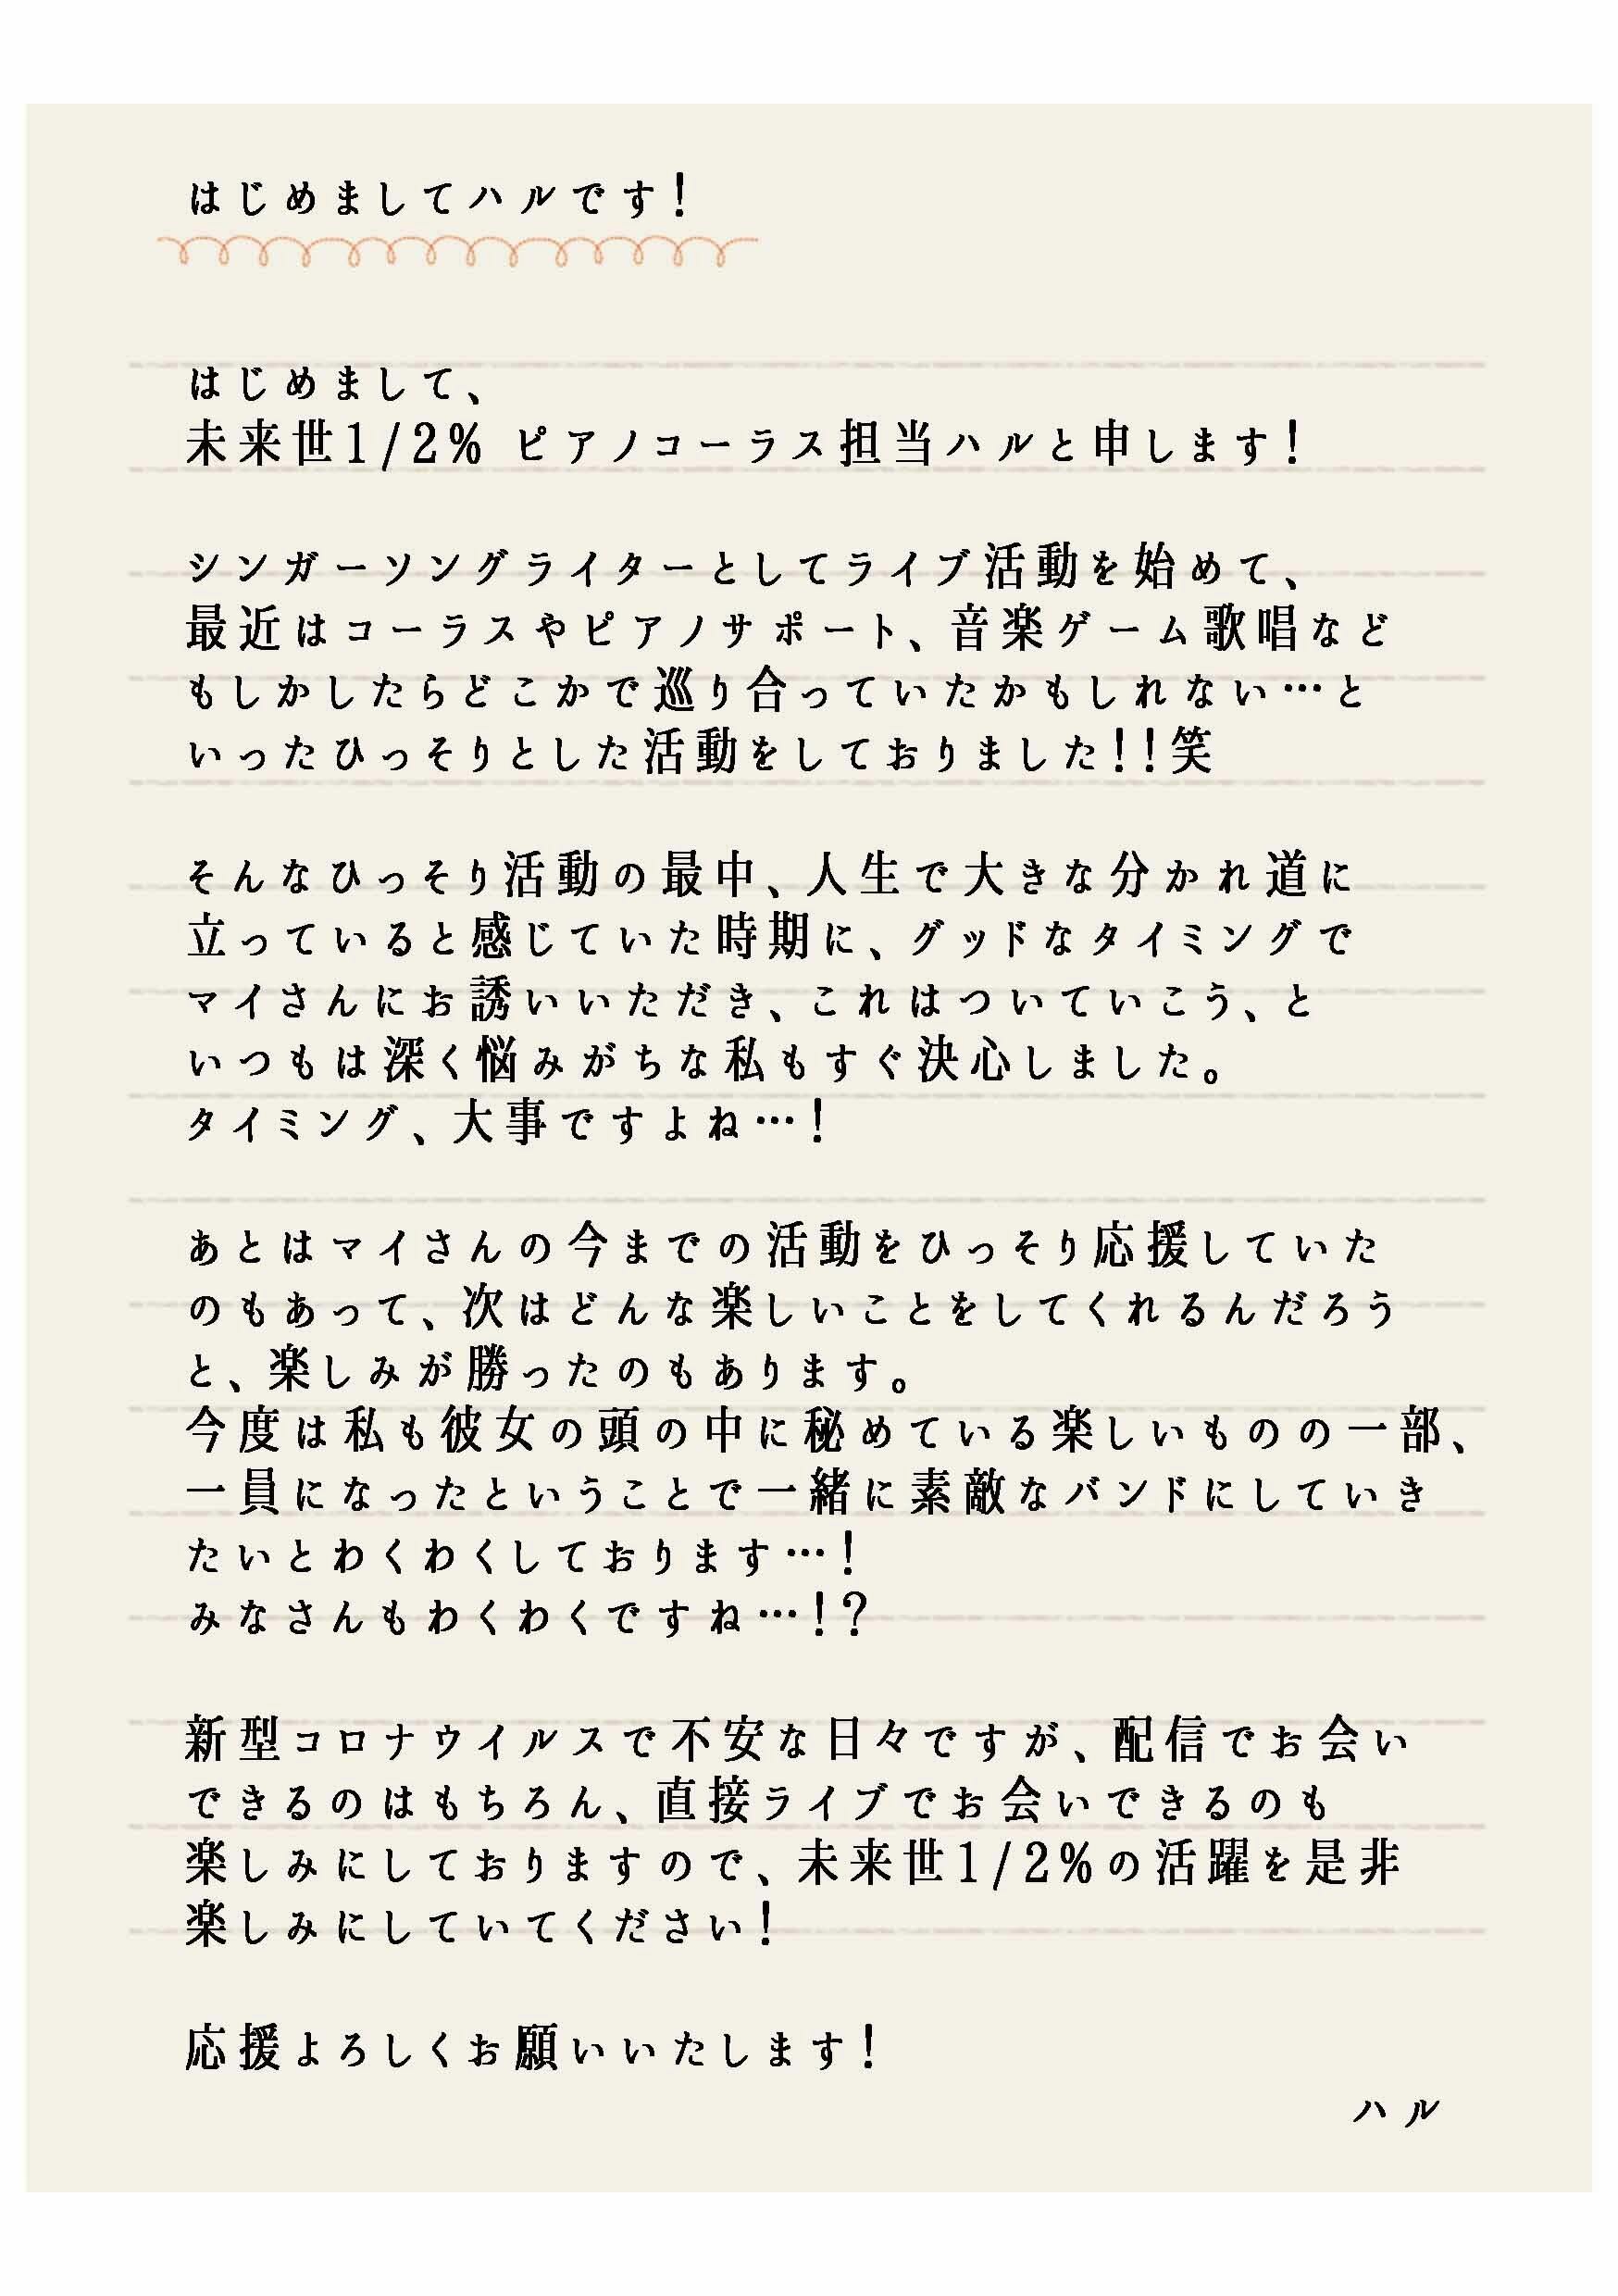 はじめましてハルです！
はじめまして、
未来世1/2% ピアノコーラス担当ハルと申します！
シンガーソングライターとしてライブ活動を始めて、
最近はコーラスやピアノサポート、音楽ゲーム歌唱など
もしかしたらどこかで巡り合っていたかもしれない…と
いったひっそりとした活動をしておりました！！笑
そんなひっそり活動の最中、人生で大きな分かれ道に
立っていると感じていた時期に、グッドなタイミングで
マイさんにお誘いいただき、これはついていこう、と
いつもは深く悩みがちな私もすぐ決心しました。
タイミング、大事ですよね…！
あとはマイさんの今までの活動をひっそり応援していた
のもあって、次はどんな楽しいことをしてくれるんだろう
と、楽しみが勝ったのもあります。
今度は私も彼女の頭の中に秘めている楽しいものの一部、
一員になったということで一緒に素敵なバンドにしていき
たいとわくわくしております…！
みなさんもわくわくですね…！？
新型コロナウイルスで不安な日々ですが、配信でお会い
できるのはもちろん、直接ライブでお会いできるのも
楽しみにしておりますので、未来世1/2%の活躍を是非
楽しみにしていてください！
応援よろしくお願いいたします！
ハル